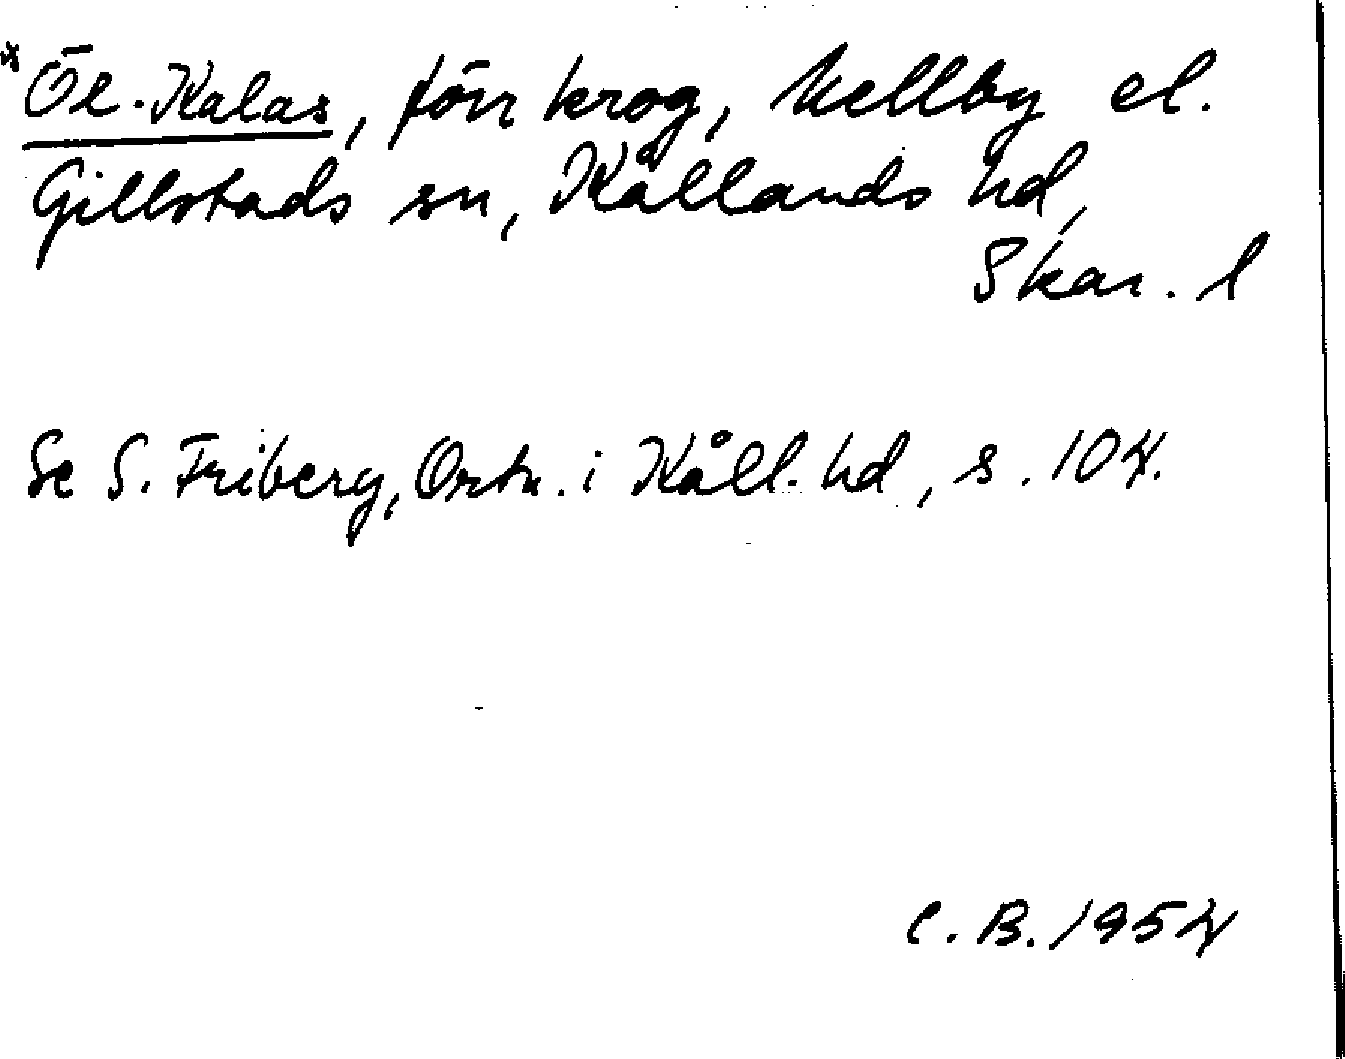 *Öl-Kalas, förr krog, Mellby el.
Gillstads sn, Kållands hd,
Skar. l
Se S. Friberg, Ortn. i Kåll. hd, s. 104.
C.B. 1954